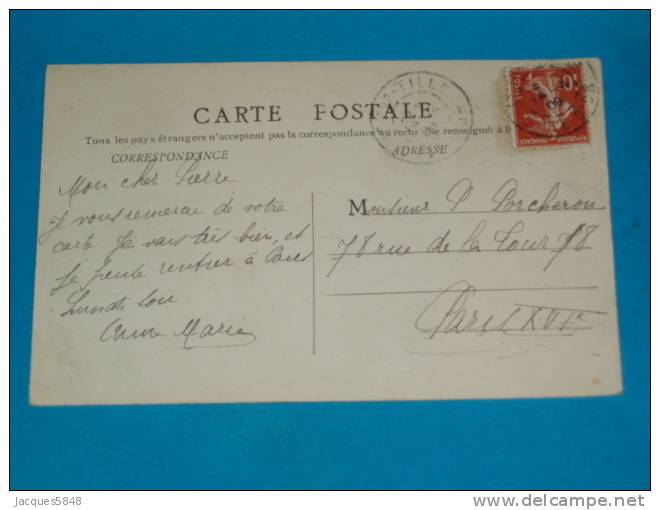 CARTE POSTALE
Tous les pays étrangers n'acceptent pas la correspondance au recto (Se renseigner à
CORRESPONDANCE
ADRESSE
Mon cher Pierre
Je vous remercie de votre
carte. Je vais très bien, et
je pense rentrer à Paris
Lundi soir
Anne Marie
Monsieur P Porcheron
78 rue de la Tour 78
Paris XVIe
TILLE
POSTES
10
REPUBLIQUE FRANÇAISE
Jacques5848
delcampe.net